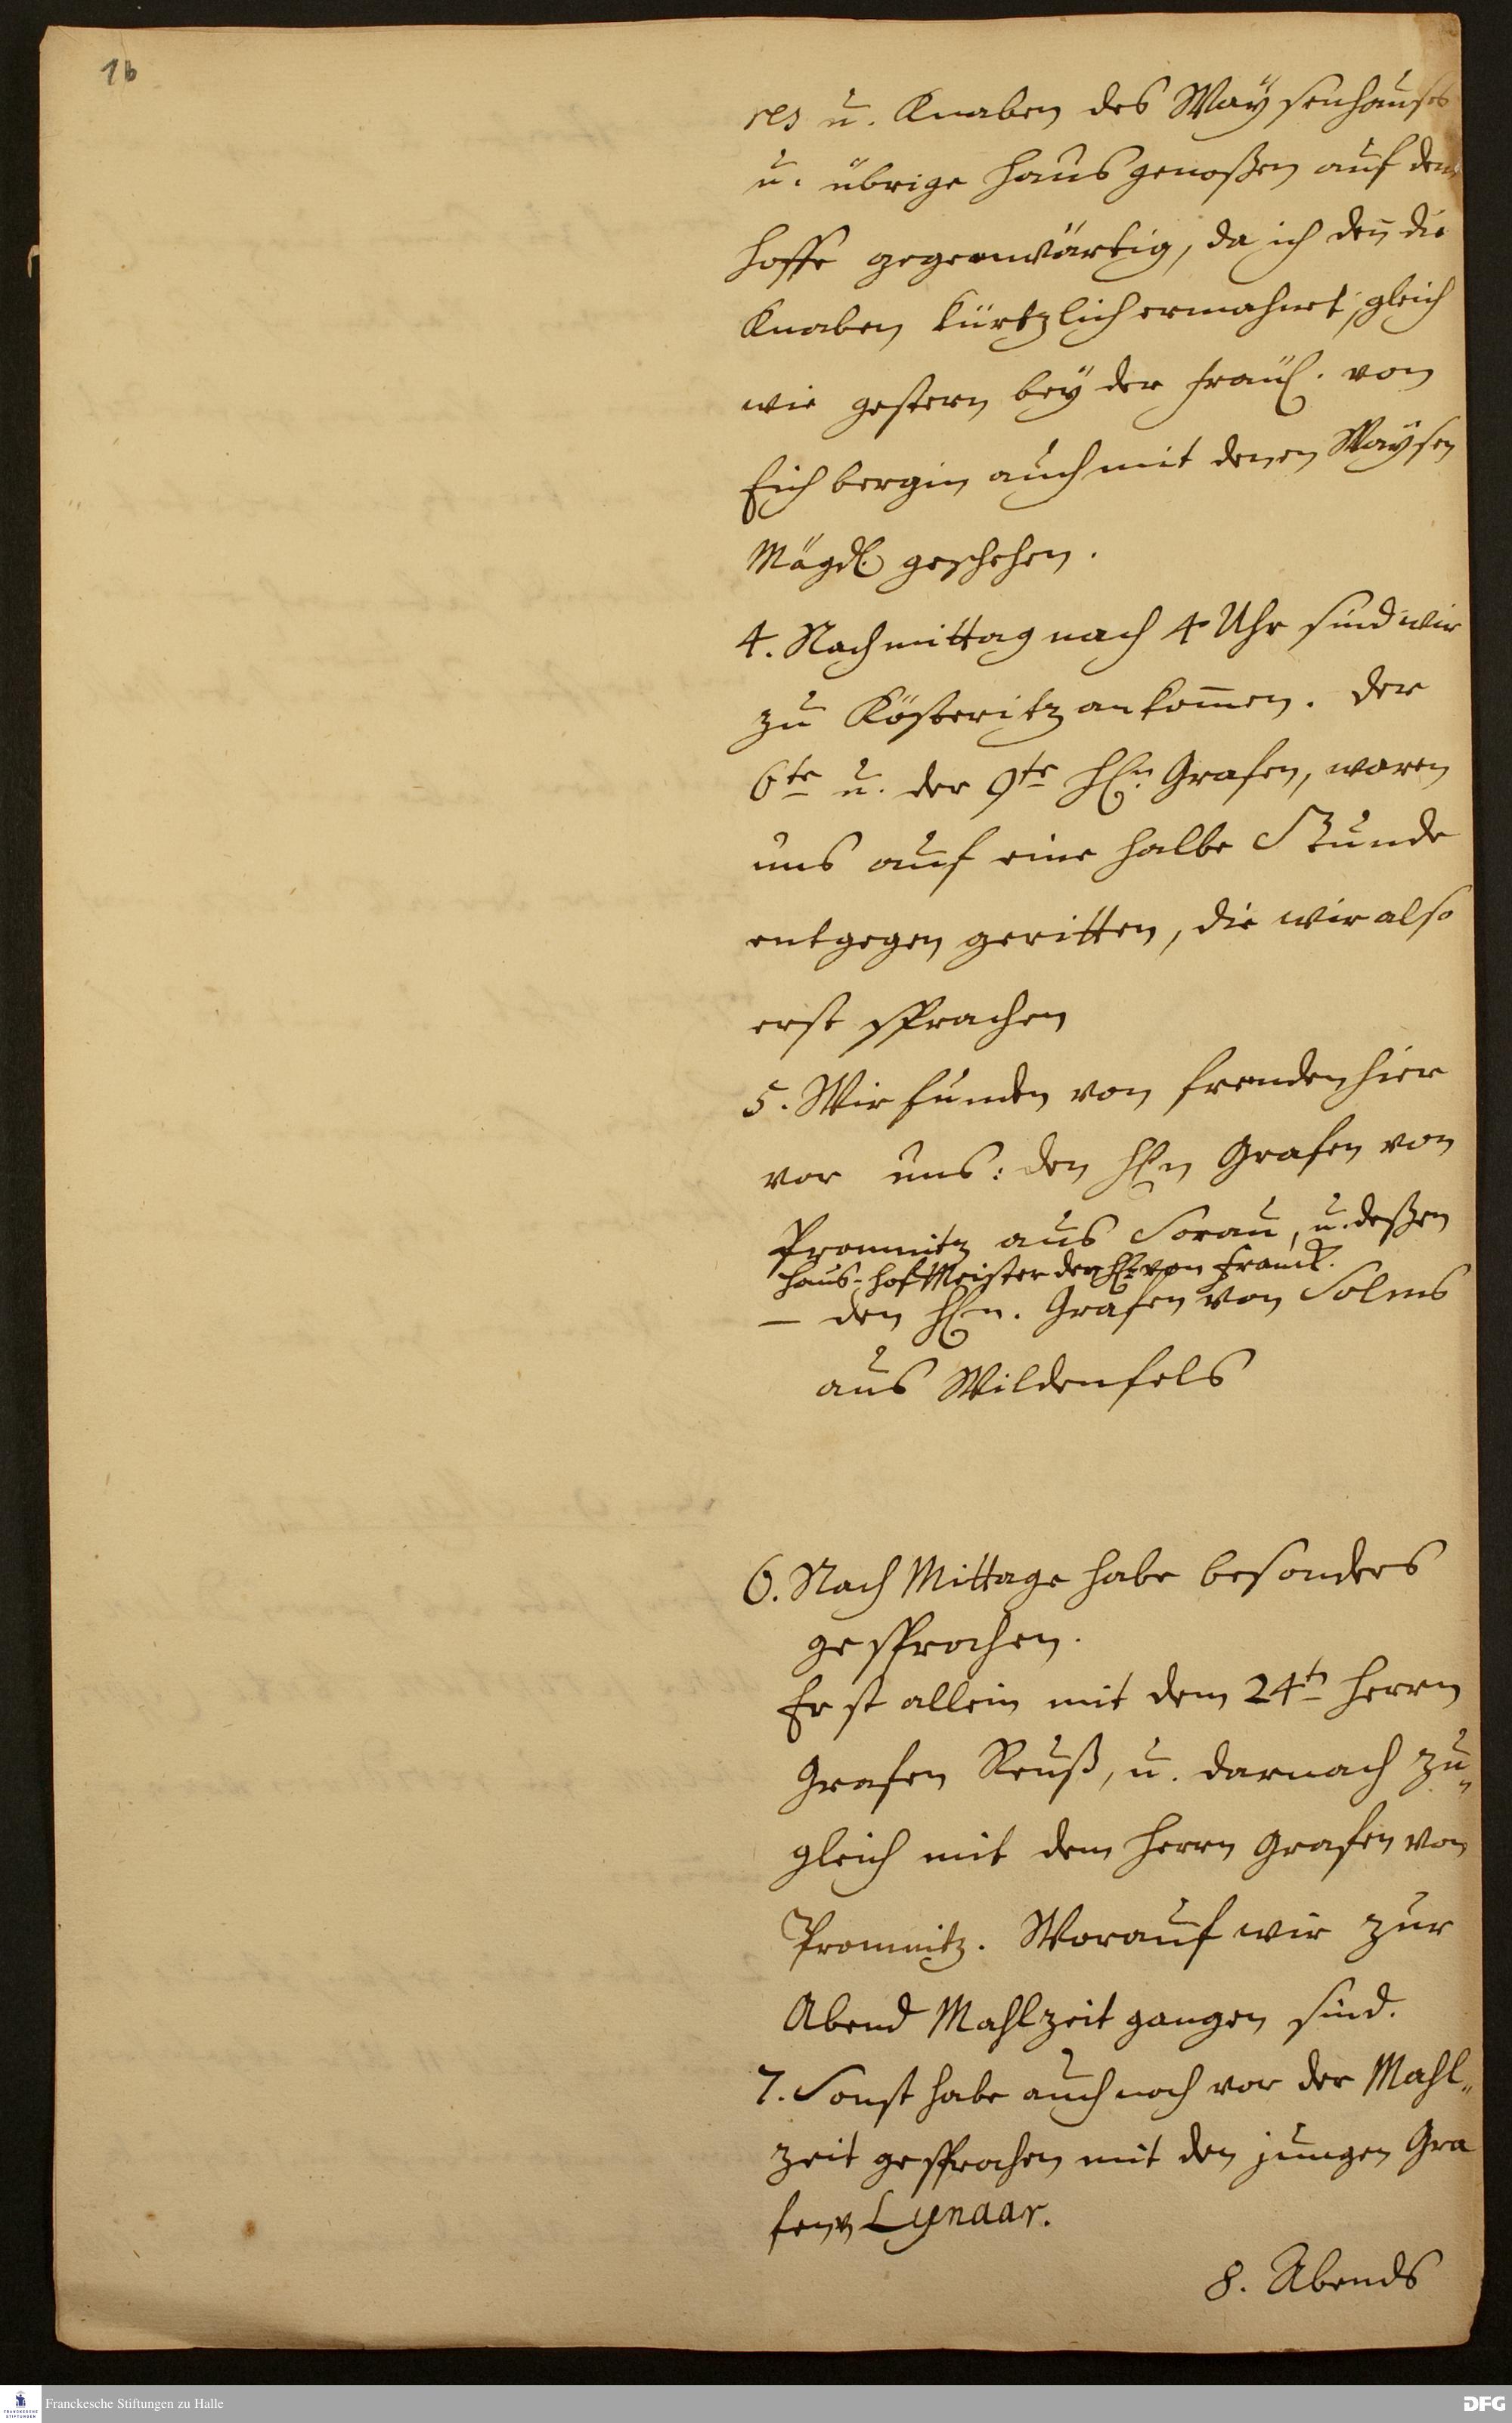 16
res u. Knaben des Waÿsenhauses
u. übrige Hausgenoßen auf dem
Hoffe gegenwärtig, da ich deñ die
Knaben kürtzlich ermahnet, gleich
wie gestern beÿ der Fräul. von
Eichbergin auch mit denen Waÿsen
Mägdl. geschehen.
4. Nachmittag nach 4 Uhr sind wir
zu Kösteritz ankom̄en. Der
6te u. der 9te HEn. Grafen, waren
uns auf eine halbe Stunde
entgegen geritten, die wir also
erst sprachen
5. Wir funden von fremden hier
vor uns: den HEn Grafen von
Promnitz aus Sorau, u. deßen
Haus-Hof Meister den HE. von Franck.
— den HEn. Grafen von Solms
aus Wildenfels
6. Nach Mittage habe besonders
gesprochen.
Erst allein mit dem 24tn Herrn
Grafen Reuß, u. darnach zu„
gleich mit dem Herrn Grafen von
Promnitz. Worauf wir zur
Abend Mahlzeit gangen sind.
7. Sonst habe auch noch vor der Mahl„
zeit gesprochen mit den jungen Gra
fen v Lynaar.
8. Abends
Franckesche Stiftungen zu Halle
FRANCKESCHE
STIFTUNGEN
DFG